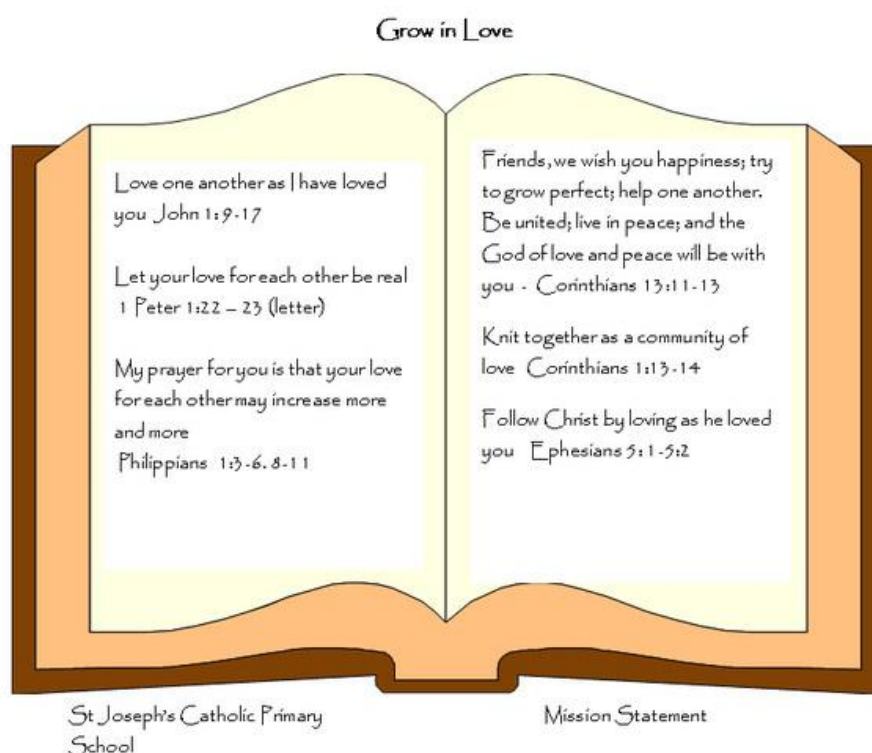 Grow in Love
Love one another as I have loved
you John 1:9-17
Let your love for each other be real
1 Peter 1:22 – 23 (letter)
My prayer for you is that your love
for each other may increase more
and more
Philippians 1:3-6. 8-11
Friends, we wish you happiness; try
to grow perfect; help one another.
Be united; live in peace; and the
God of love and peace will be with
you - Corinthians 13:11-13
Knit together as a community of
love Corinthians 1:13-14
Follow Christ by loving as he loved
you Ephesians 5:1-5:2
St Joseph's Catholic Primary
School
Mission Statement